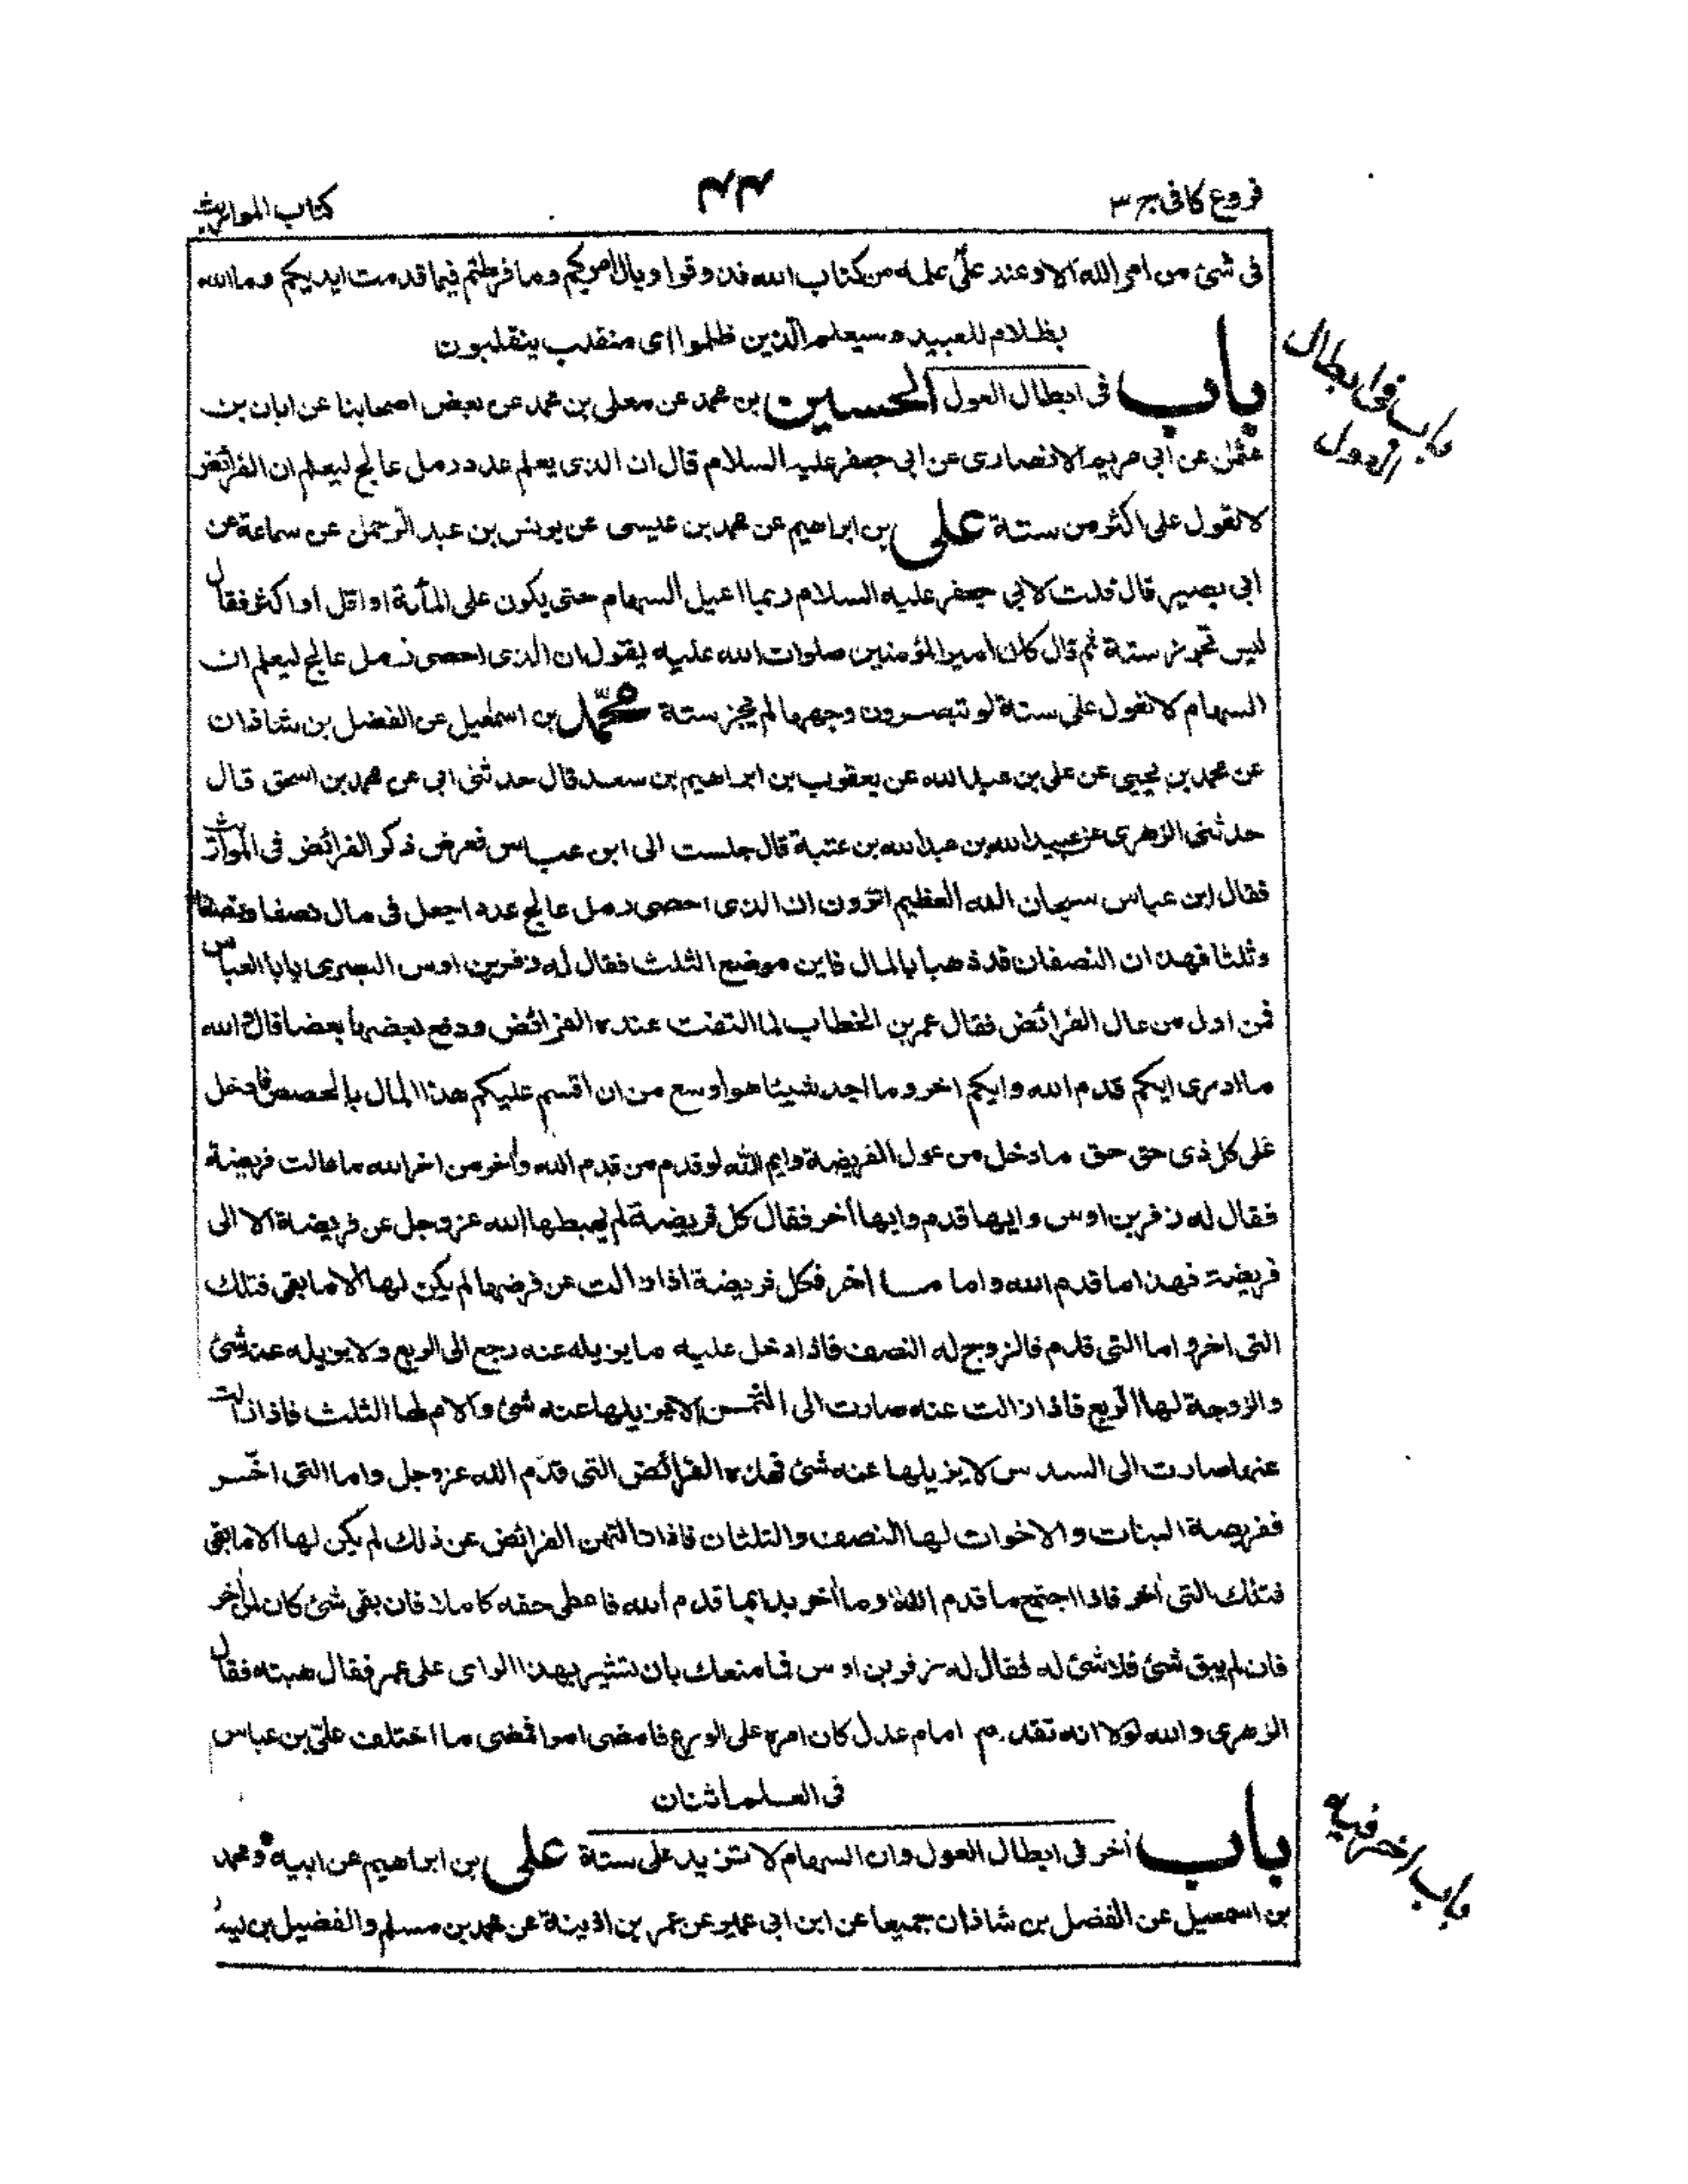 فروع کافی ج ۳
۴۴
کتاب المواریث
فی شئ من امر الله الا وعند علیّ علمه من کتاب الله فذوقوا وبال امرکم وما فرطتم فیما قدمت ایدیکم وما الله
بظلام للعبید وسیعلم الّذین ظلموا ای منقلب ینقلبون
باب فی ابطال العول الحسین بن محمد عن معلی بن محمد عن بعض اصحابنا عن ابان بن
عثمٰن عن ابی مریم الانصاری عن ابی جعفر علیه السلام قال ان الذی یعلم عدد رمل عالج لیعلم ان الفرائض
لا تعول علی اکثر من ستة علی بن ابراهیم عن محمد بن عیسی عن یونس بن عبد الرحمٰن عن سماعة عن
ابی بصیر قال قلت لابی جعفر علیه السلام ربما اعیل السهام حتی یکون علی المأیة او اقل او اکثر فقال
لیس تجوز ستة ثم قال کان امیر المؤمنین صلوات الله علیه یقول ان الذی احصی رمل عالج لیعلم ان
السهام لا تعول علی ستة لو تبصرون وجهها لم تجز ستة محمّد بن اسمٰعیل عن الفضل بن شاذان
عن محمد بن یحیی عن علی بن عبد الله عن یعقوب بن ابراهیم بن سعد قال حدثنی ابی عن محمد بن اسحق قال
حدثنی الزهری عن عبید الله بن عبد الله بن عتبة قال جلست الی ابن عباس فعرض ذکر الفرائض فی المواریث
فقال ابن عباس سبحان الله العظیم اترون ان الذی احصی رمل عالج عددا جعل فی مال نصفا ونصفا
وثلثا فهذان النصفان قد ذهبا بالمال فاین موضع الثلث فقال له زفر بن اوس البصری یا با العباس
فمن اول من عال الفرائض فقال عمر بن الخطاب لما التفت عنده الفرائض ودفع بعضها بعضا قال والله
ما ادری ایکم قدم الله وایکم اخر وما اجد شیئا هو اوسع من ان اقسم علیکم هذا المال بالحصص فادخل
علی کل ذی حق حق ما دخل من عول الفریضة وایم الله لو قدم من قدم الله واخر من اخر الله ما عالت فریضة
فقال له زفر بن اوس وایها قدم وایها أخر فقال کل فریضة لم یهبطها الله عز وجل عن فریضة الا الی
فریضة فهذا ما قدم الله واما ما اخر فکل فریضة اذا زالت عن فرضها لم یکن لها الا ما بقی فتلک
التی اخر واما التی قدم فالزوج له النصف فاذا دخل علیه ما یزیله عنه رجع الی الربع ولا یزیله عنه شئ
والزوجة لها الربع فاذا زالت عنه صارت الی الثمن لا یزیلها عنه شئ والام لها الثلث فاذا زالت
عنها صارت الی السدس لا یزیلها عنه شئ فهذه الفرائض التی قدّم الله عز وجل واما التی اخّر
ففریضة البنات والاخوات لها النصف والثلثان فاذا زالتهن الفرائض عن ذلک لم یکن لها الا ما بقی
فتلک التی أخر فاذا اجتمع ما قدم الله وما أخر بدئ بما قدم الله فاعطی حقه کاملا فان بقی شئ کان لمن أخر
فان لم یبق شئ فلا شئ له فقال له زفر بن اوس فما منعک بان تشیر بهذا الرای علی عمر فقال هبته فقال
الزهری والله لولا انه تقدم امام عدل کان امره علی الورع فامضی امرا فمضی ما اختلف علی بن عباس
فی العلم اثنان
باب أخر فی ابطال العول وان السهام لا تزید علی ستة علی بن ابراهیم عن ابیه ومحمد
بن اسمعیل عن الفضل بن شاذان جمیعا عن ابن ابی عمیر عن عمر بن اذینة عن محمد بن مسلم والفضیل بن یسار
باب فی ابطال
العول
باب اخر فیه